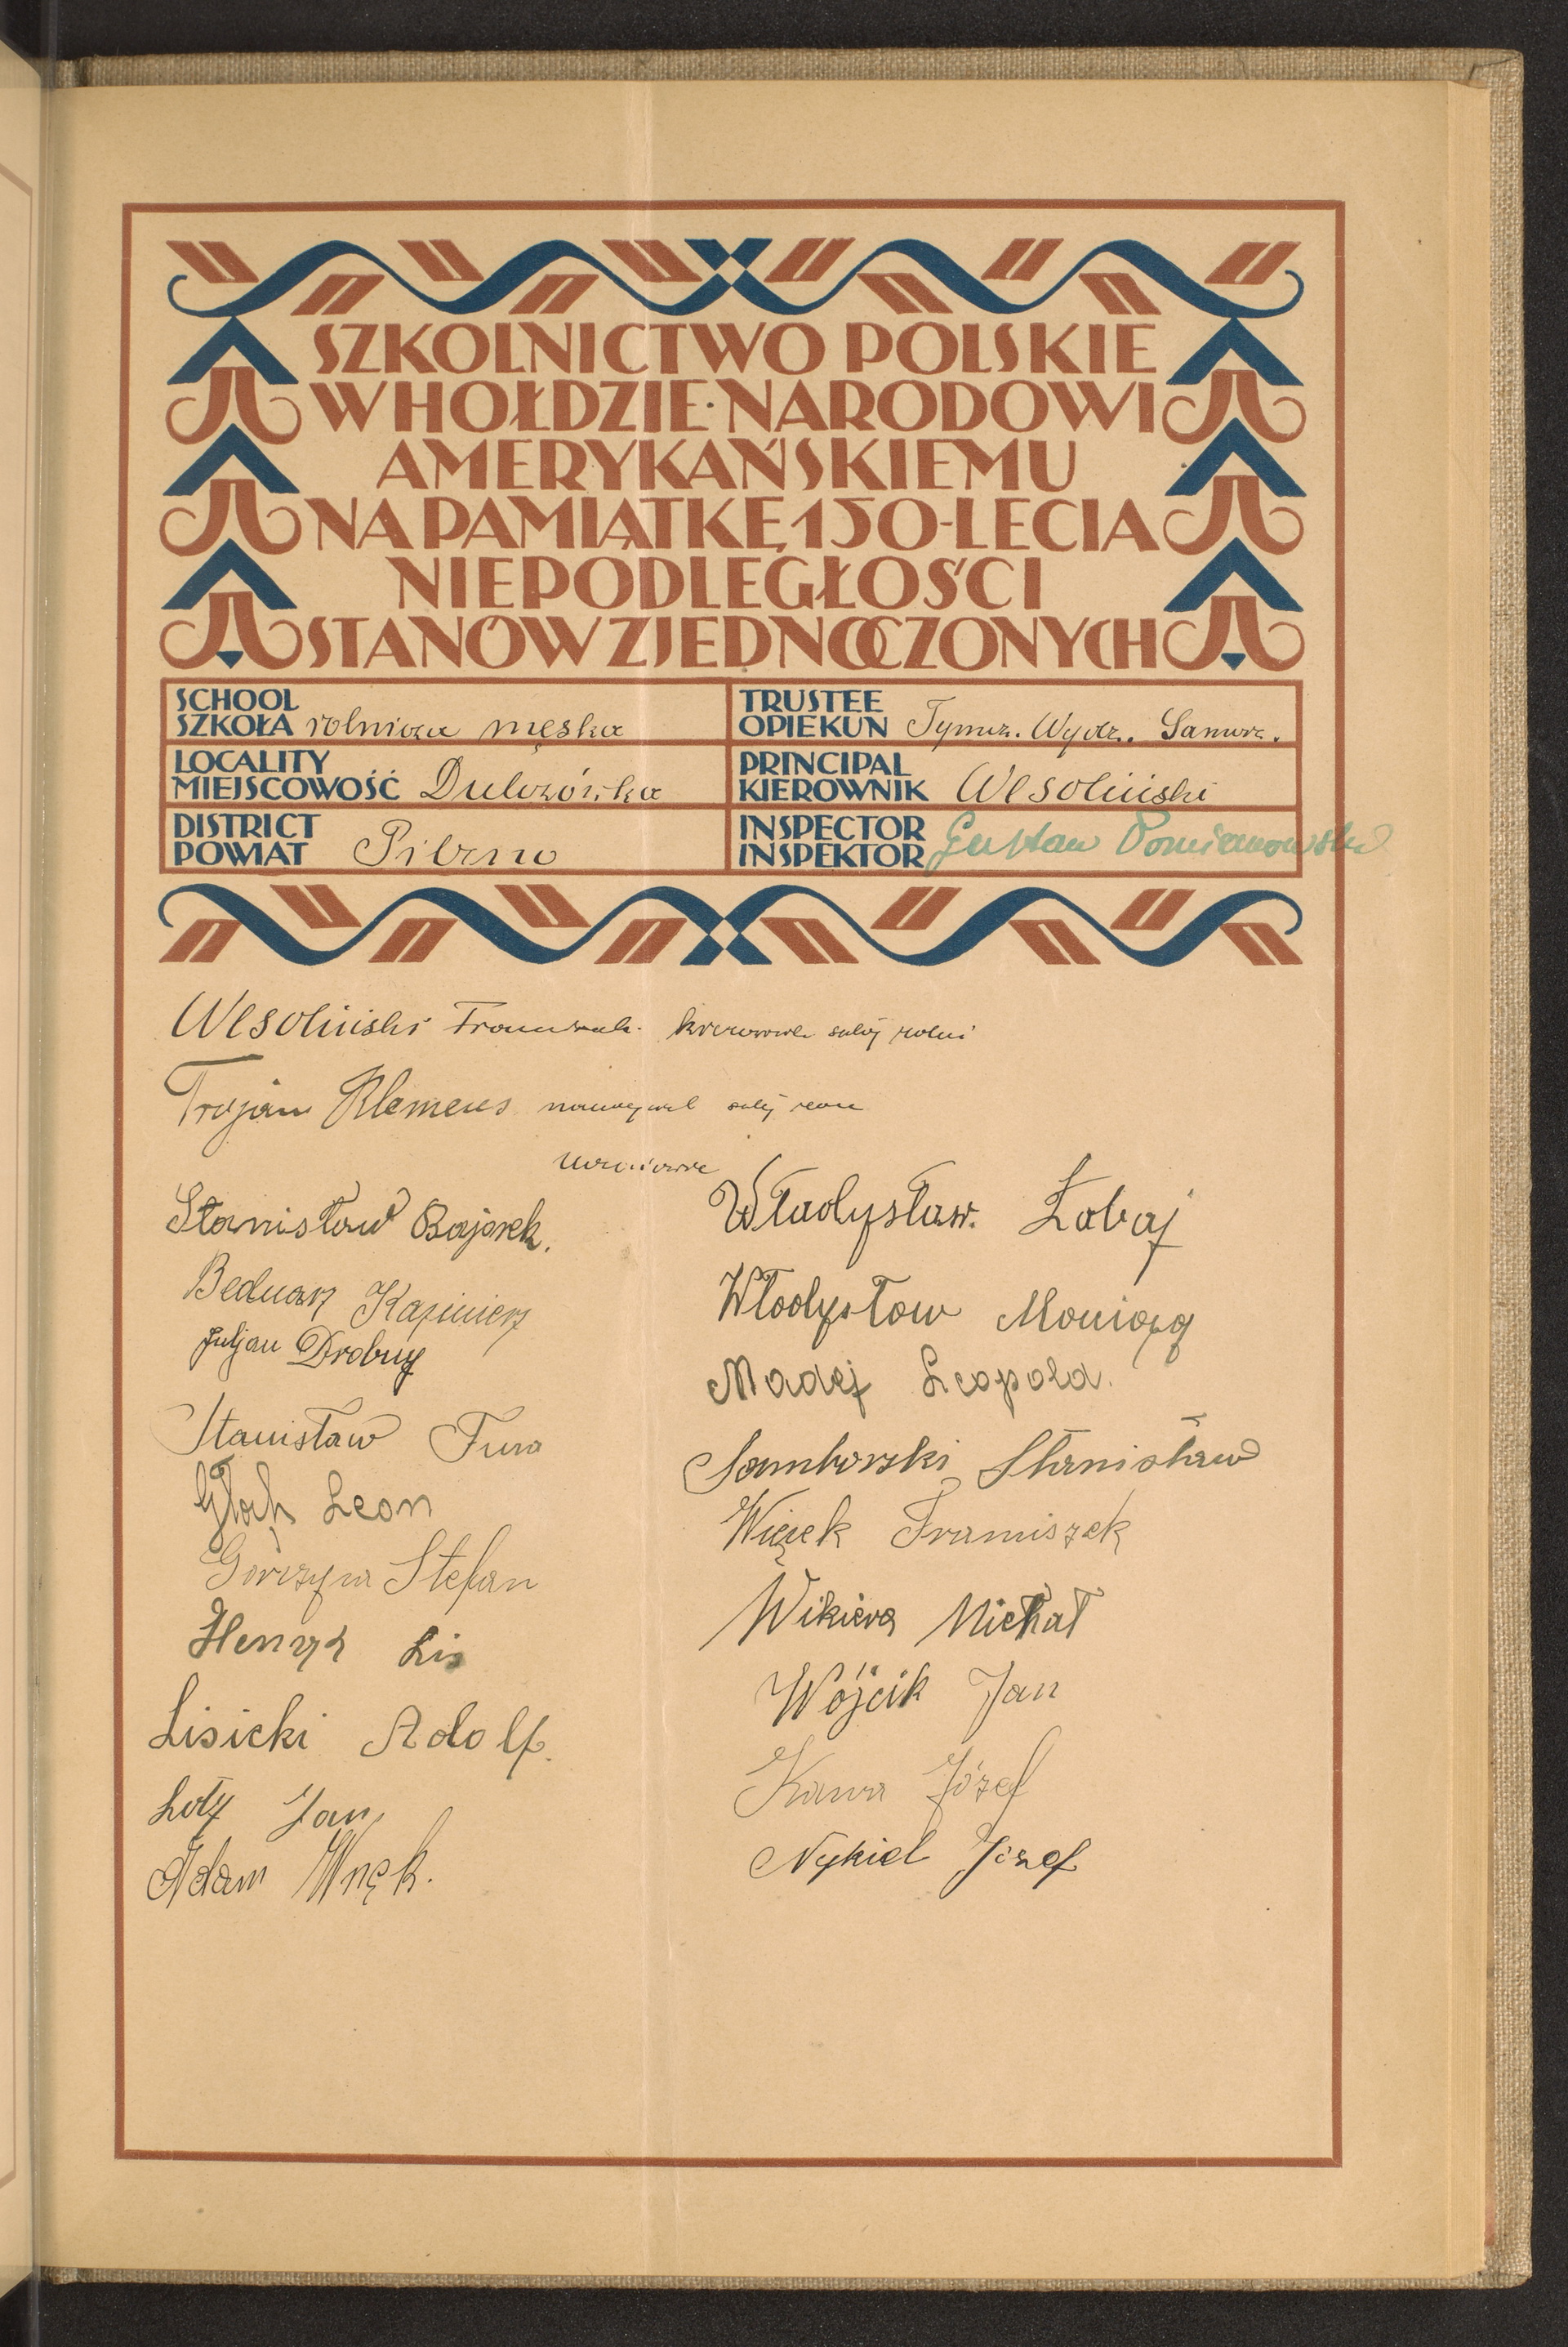 SZKOLNICTWO POLSKIE
W HOŁDZIE NARODOWI
AMERYKAŃSKIEMU
NA PAMIĄTKĘ 150-LECIA
NIEPODLEGŁOŚCI
STANÓW ZJEDNOCZONYCH
SCHOOL
SZKOŁA rolnicza męska
LOCALITY
MIEJSCOWOŚĆ Dulczówka
DISTRICT
POWIAT Pilzno
TRUSTEE
OPIEKUN Tymcz. Wydz. Samorz.
PRINCIPAL
KIEROWNIK Wesoliński
INSPECTOR
INSPEKTOR Gustaw Pomianowski
Wesoliński Franciszek kierownik szkoły roln
Trojan Klemens nauczyciel szkoły
uczniowie
Stanisław Bajorek.
Bednarz Kazimierz
Juljan Drobny
Stanisław Fura
Leon
Górzyna Stefan
Henryk Lis
Lisicki Adolf.
Loty Jan
Adam Wnęk.
Władysław Łabaj
Władysław Moniora
Madej Leopold.
Samborski Stanisław
Więcek Franciszek
Wikiera Michał
Wójcik Jan
Kawa Józef
Nykiel Józef